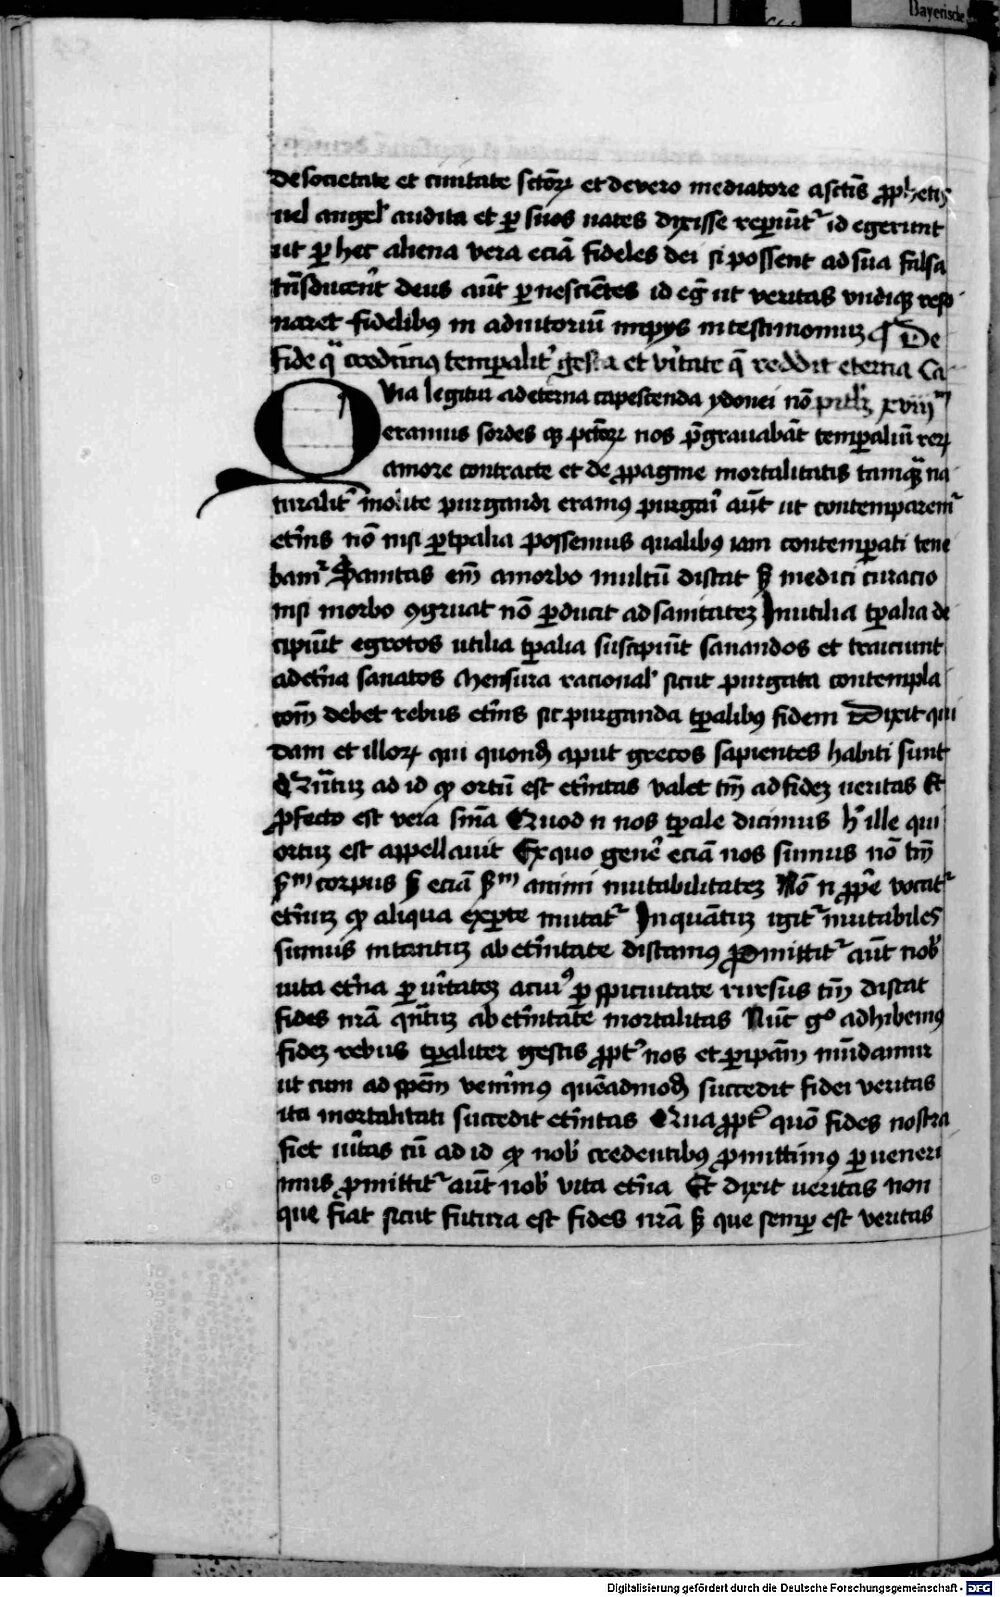 Bayerische
de societate et ciuitate sctōꝝ et de vero mediatore a sctīs ꝓphetis
uel angel' audita et ꝑ suos uates dixisse reꝑiūt᷑ id egerunt
ut ꝑ hec aliena vera eciā fideles dei si possent ad sua falsa
tn̄sducer̄t deus aūt ꝑ nesciētes id eḡ ut veritas vndiqꝫ reso
naret fidelibꝰ in adiutoriū impijs in testimoniuꝫ ¶ De
fide qͣ credimꝰ temꝑalit᷑ gesta et v̄itate q̄ reddit eterna Ca
Quia legitur ad eterna capescenda ydonei nō xviijᵐ
eramus sordes qꝫ pctōꝝ nos p̄grauabāt temꝑaliū reꝝ
amore contracte et de ꝓpagine mortalitatis tamqͣꝫ na
turalit᷑ inolite purgandi eramꝰ purgari aūt ut contemparem᷑
et̄nis nō nisi ꝑ tꝑalia possemus qualibꝰ iam contemꝑati tene
bam᷑ Sanitas em̄ a morbo multū distat sꝫ medici curacio
nisi morbo ꝯgruat nō ꝑducit ad sanitateꝫ Inutilia tꝑalia de
cipiūt egrotos utilia tꝑalia suscipiūt sanandos et traiciunt
ad et̄na sanatos Mensura racional' sicut purgata contempla
com̄ debet rebus et̄nis sic purganda tꝑalibꝰ fidem Dixit qui
dam et illoꝝ qui quondā aput grecos sapientes habiti sunt
Quātuꝫ ad id qꝫ ortū est et̄nitas valet tm̄ ad fideꝫ ueritas Et
ꝓfecto est vera sn̄ia Quod n nos tꝑale dicimus hͦ ille qui
ortuꝫ est appellauit Ex quo gen̄e eciā nos sumus nō tm̄
sᵐ corpus sꝫ eciā sᵐ animi mutabilitateꝫ Nō n ꝓp̄e vocat᷑
et̄nuꝫ qꝫ aliqua ex ꝑte mutat᷑ Inquātuꝫ igit᷑ mutabiles
sumus intantuꝫ ab et̄nitate distamꝰ Promittit᷑ aūt nob̄
uita et̄na ꝑ ūitateꝫ a cuiꝰ ꝑspicuitate rursus tm̄ distat
fides nrā qn̄tuꝫ ab et̄nitate mortalitas Nūc gͦ adhibemꝰ
fideꝫ rebus tꝑaliter gestis ꝓpt᷑ nos et ꝑ ipam̄ mūdamur
ut cum ad spēm venīmꝰ quēadmodū succedit fidei veritas
ita mortalitati succedit et̄nitas Qua ꝓpt᷑ quō fides nostra
fiet ūitas cū ad id qꝫ nob̄ credentibꝰ ꝓmittimꝰ ꝑueneri
mus ꝓmittit᷑ aūt nob̄ vita et̄na Et dixit ueritas non
que fiat sicut futura est fides nrā sꝫ que semꝑ est veritas
Digitalisierung gefördert durch die Deutsche Forschungsgemeinschaft - DFG